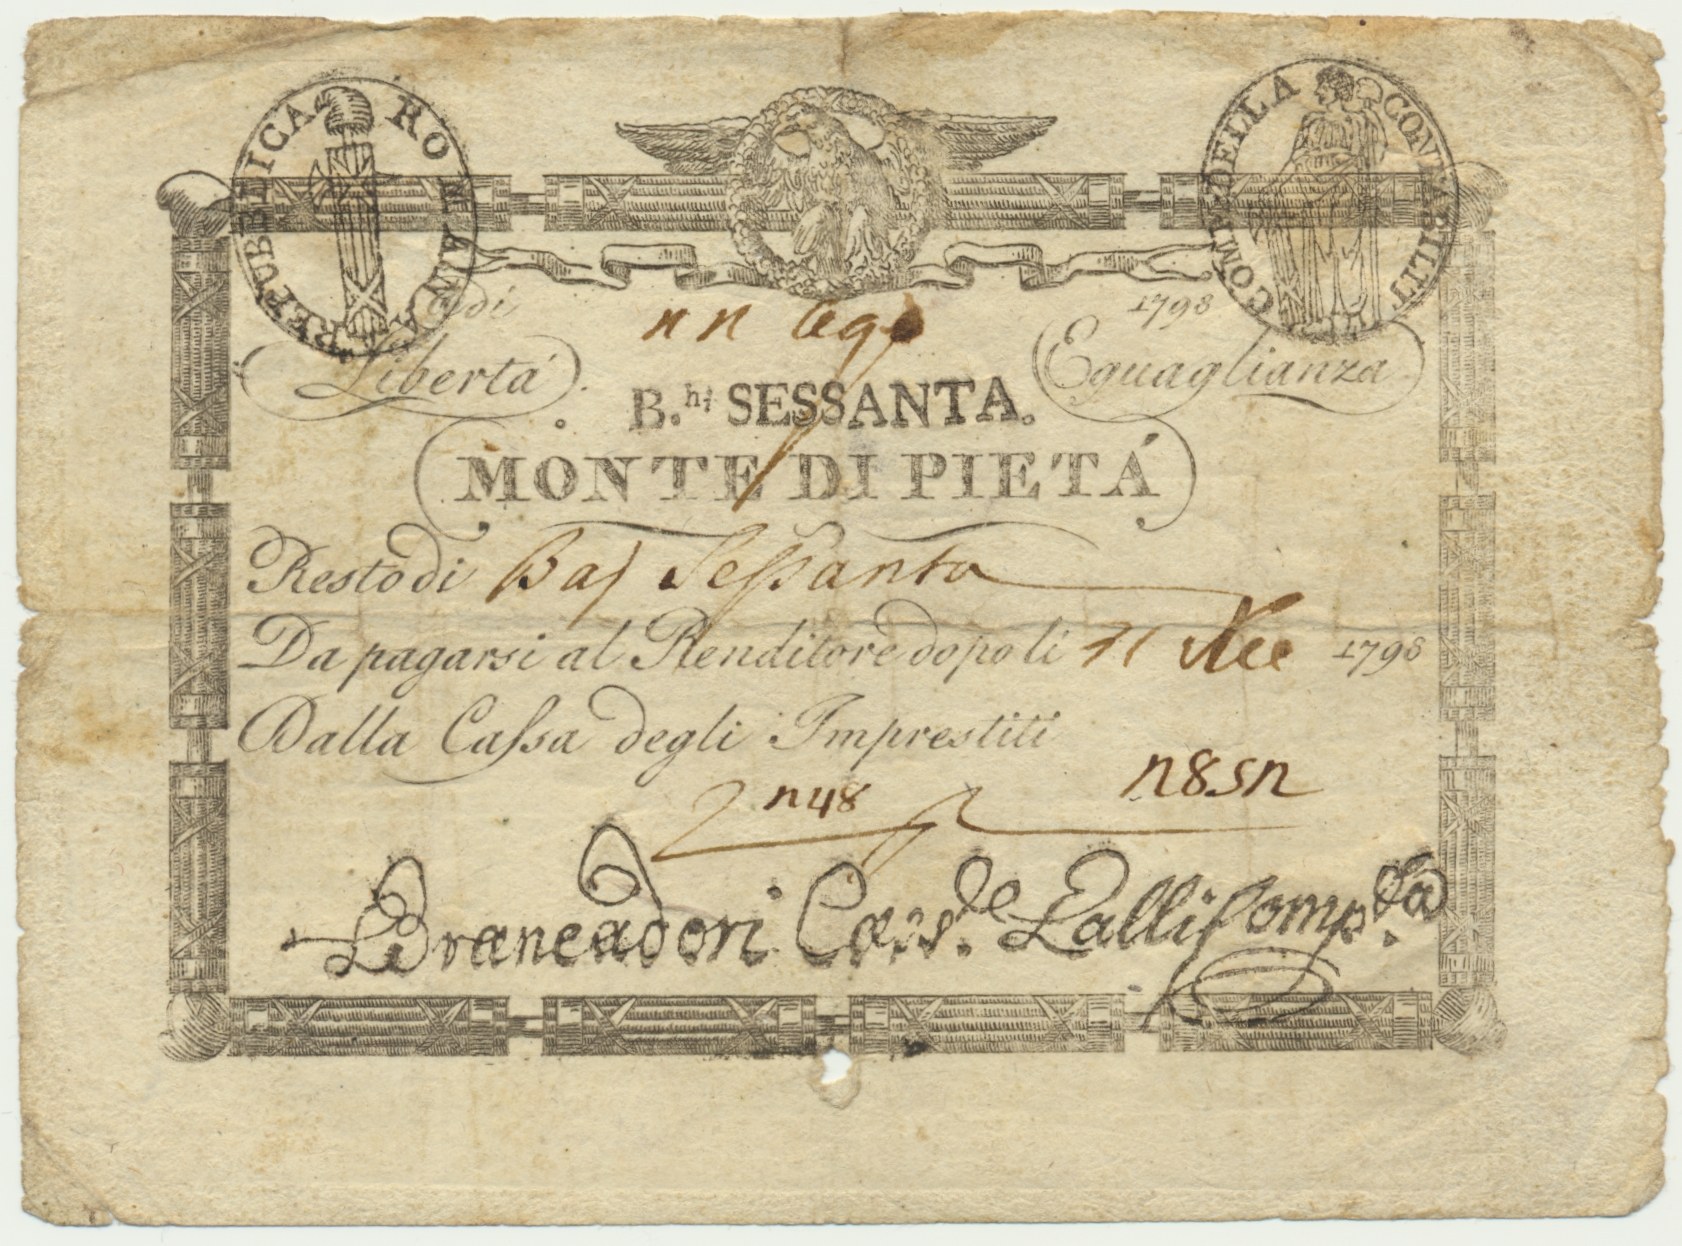 REPUBBLICA ROMANA
COMP. DELLA CONTABILIT
Adi 1798
Libertà Eguaglianza
B.hi SESSANTA.
MONTE DI PIETÁ
Resto di Baj Sessanta
Da pagarsi al Renditore dopo li 1798
Dalla Cassa degli Imprestiti
n48 n85n
Brancadori Cass.de Lalli Comp.ta